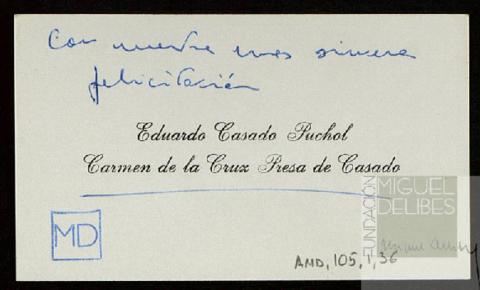 Con nuestra mas sincera
felicitación
Eduardo Casado Puchol
Carmen de la Cruz Presa de Casado
MD
FUNDACIÓN
MIGUEL
DELIBES
AMD, 105, 1, 36